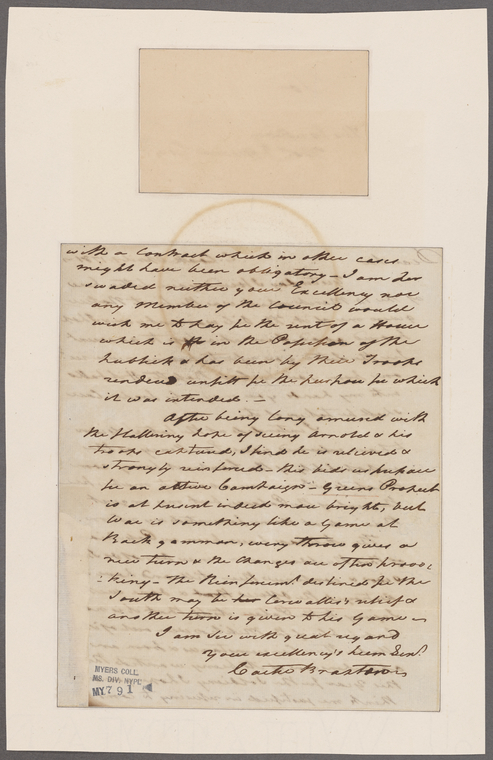 with a Contract which in other cases
might have been obligatory – I am per
swaded neither your Excellency nor
any Member of the Council would
wish me to pay for the rent of a House
which is in the Possession of the
publick & has been by their Troops
rendered unfitt for the purpose for which
it was intended. –
After being long amused with
the flattering hope of seeing Arnold & his
troops captured, I find he is relieved &
strongly reinforced – this bids us prepare
for an active Campaign – Greens Prospect
is at present indeed more bright, but
War is something like a Game at
Back gammon, every throw gives a
new turn & the changes are often provo
-king – the Reinforcem.t destined for the
South may be Cornwallis's relief &
another turn is given to his Game –
I am Sir with great regard
Your excellency's hum Serv.t
Carter Braxton
MYERS COLL.
MS. DIV. NYPL
MY791